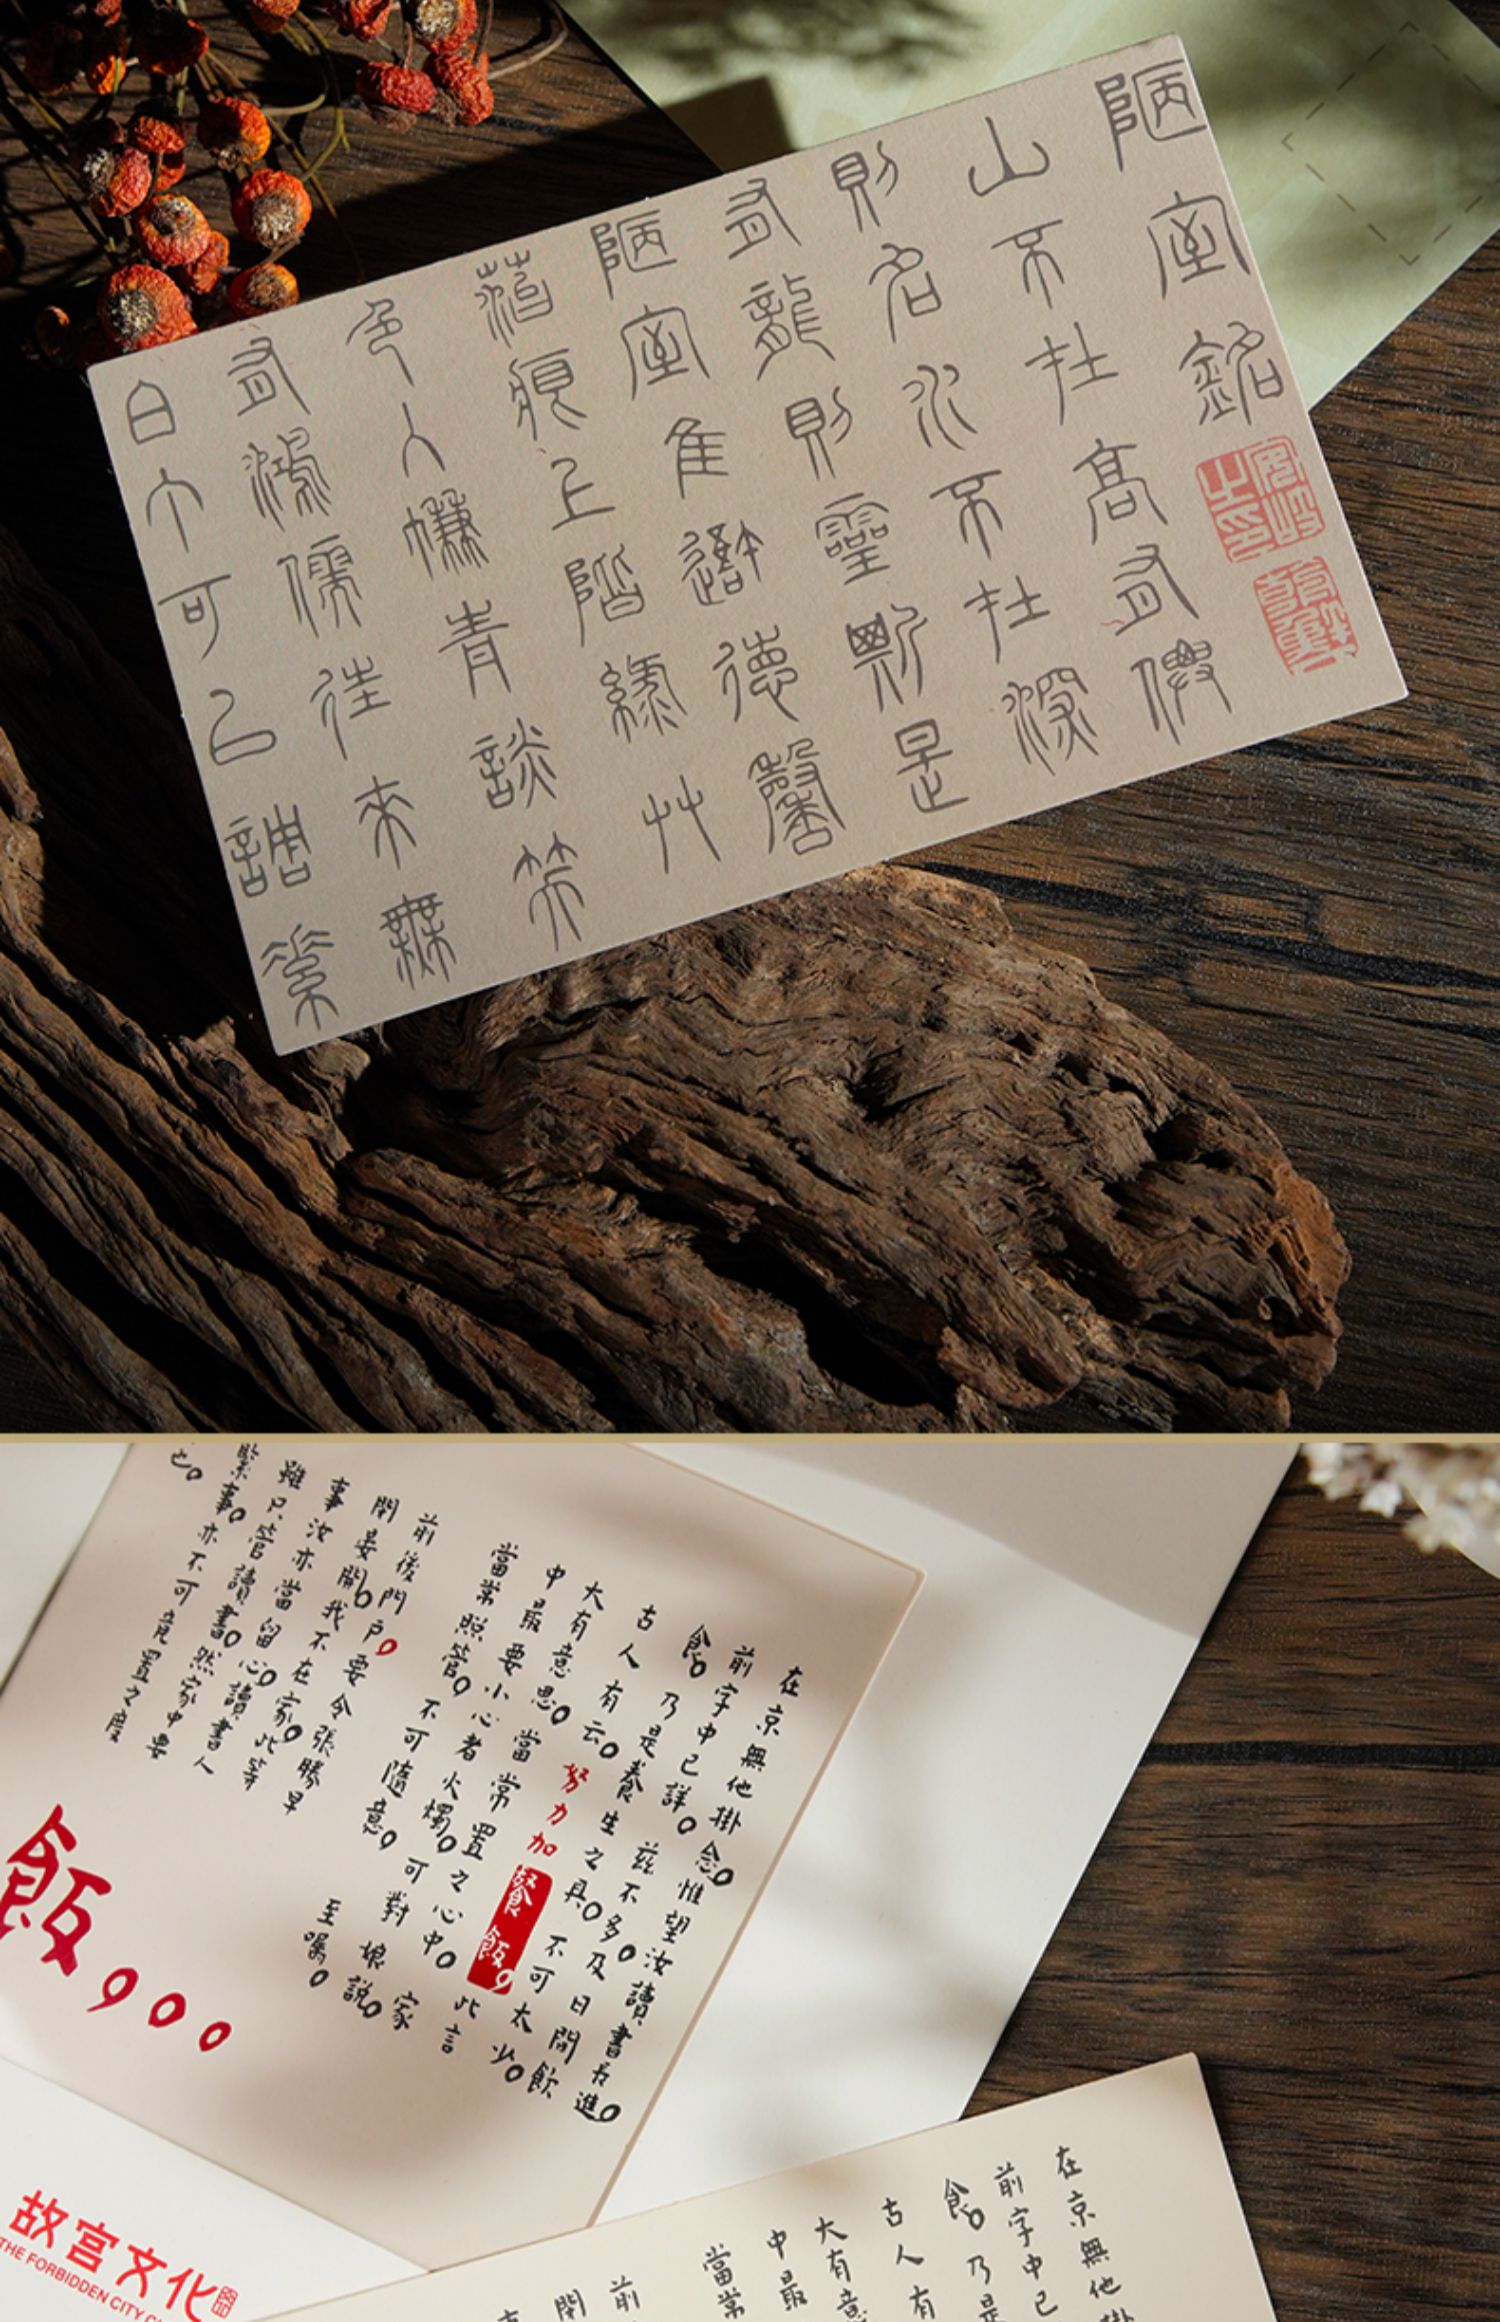 陋室銘
山不在高有僊
則名水不在深
有龍則靈斯是
陋室隹吾德馨
菭痕上階緑艸
色入㡘青談笑
有鴻儒往來無
白丁可以調素
在京無他掛念。惟望汝讀書長進。
前字中已詳。茲不多及。日間飲
食。乃是養生之具。不可太少。
古人有云。努力加餐飯。此言
大有意思。當常置之心中。家
中最要小心者火燭。可對娘說。
當常照管。不可隨意。至囑。
前後門戶。要令張勝早
閉晏開。我不在家。此等
事汝亦當留心。讀書人
雖只管讀書。然家中要
緊事。亦不可竟置之度
也。
飯。。。
故宮文化
THE FORBIDDEN CITY
在京無他掛
前字中已
食。乃是
古人有
大有意
中最
當常
前
閉
事